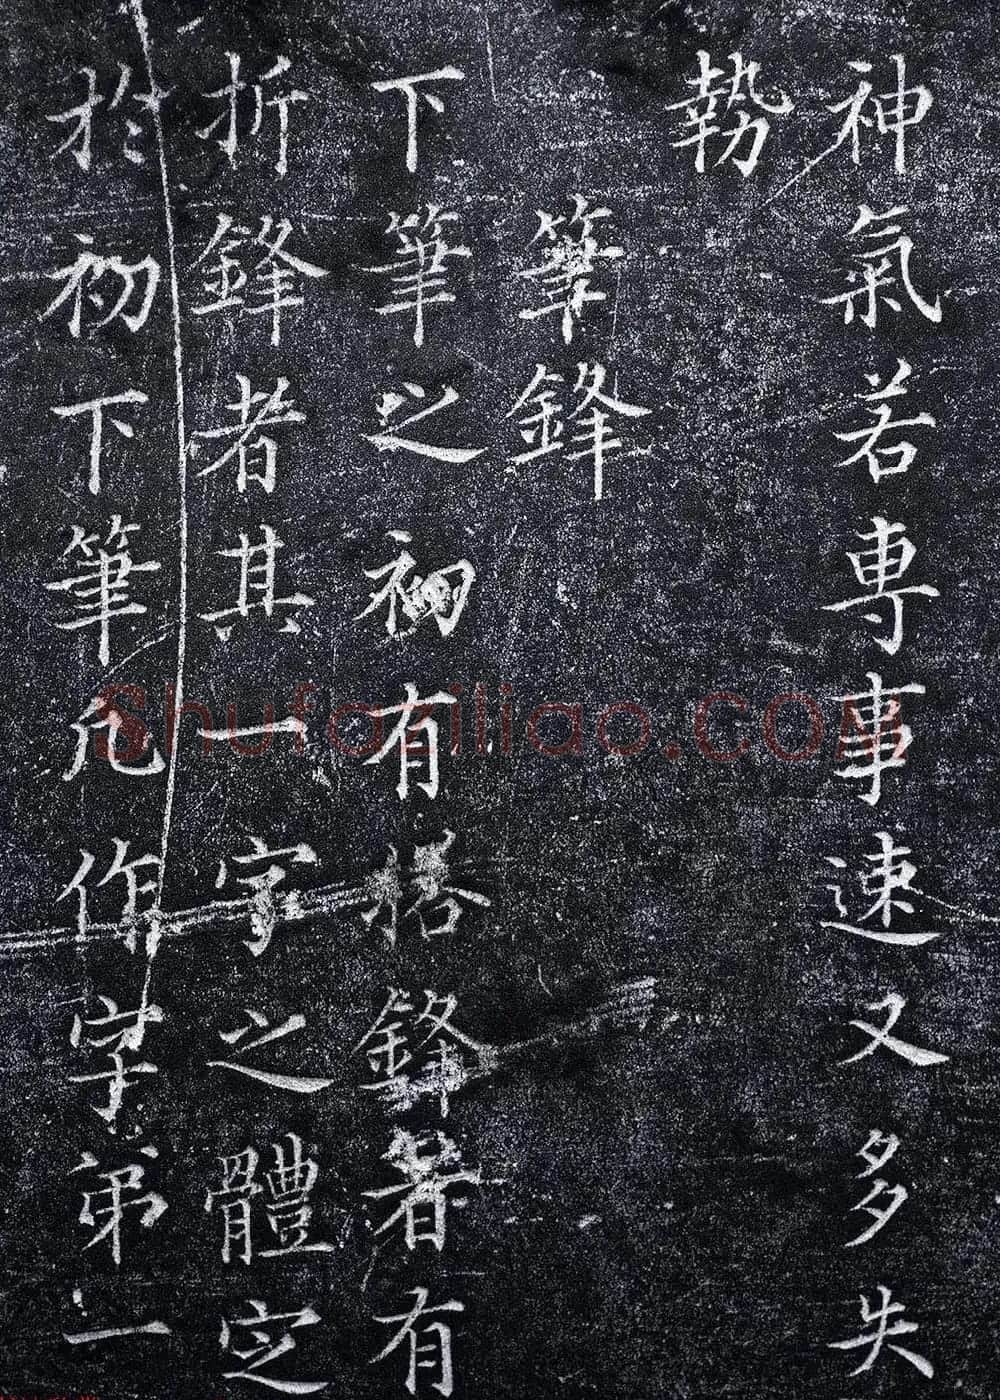 神氣若專事速又多失
勢
筆鋒
下筆之初有搭鋒者有
折鋒者其一字之體定
於初下筆凡作字第一
Shufaziliao.COM